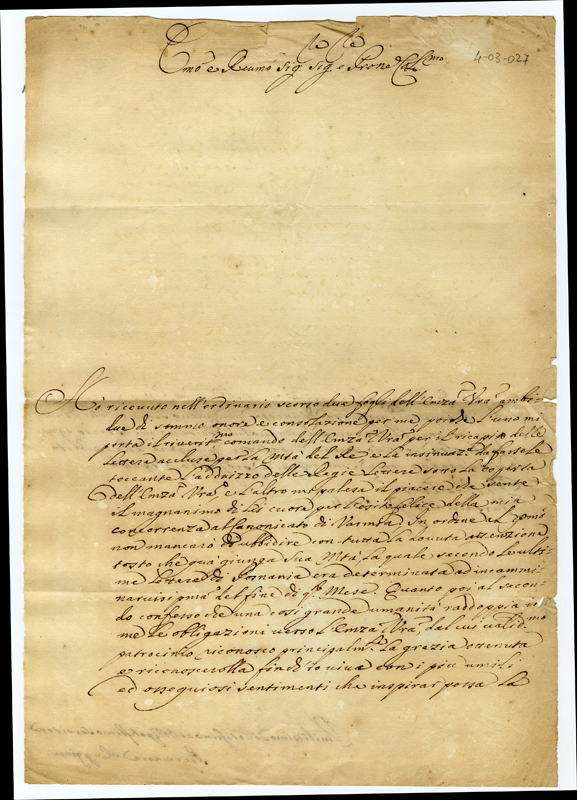 Emo e Rmo Sig. Sig. e Prone Colmo
4-03-027
Ho ricevuto nell'ordinario scorso due fogli dell'Emza Vra ambi-
due di sommo onore e consolazione per me, perche l'uno mi
porta il riveritmo comando dell'Emza Vra per il ricapito delle
lettere accluse per la Mtà del Re e le insinuazni da farsele
toccante l'addrizzo delle Regie lettere sotto la coperta
dell'Emza Vra, e l'altro mi palesa il piacere che sente
il magnanimo di Lei cuore per l'esito felice della mia
concorrenza al Canonicato di Varmia. In ordine al
non mancarò di ubbidire con tutta la dovuta attenzione
tosto che quà giunga Sua Mtà, la quale secondo le ulti-
me lettere di era determinata ad incammi-
narsi pma del fine di qto Mese. Quanto poi al secon-
do confesso che una così grande umanità raddoppia in
me le obligazioni verso l'Emza Vra, dal cui validmo
patrocinio riconosco principalmte la grazia ottenuta
e riconoscerolla finch'io viva con i più umili
ed ossequiosi sentimenti che inspirar possa la